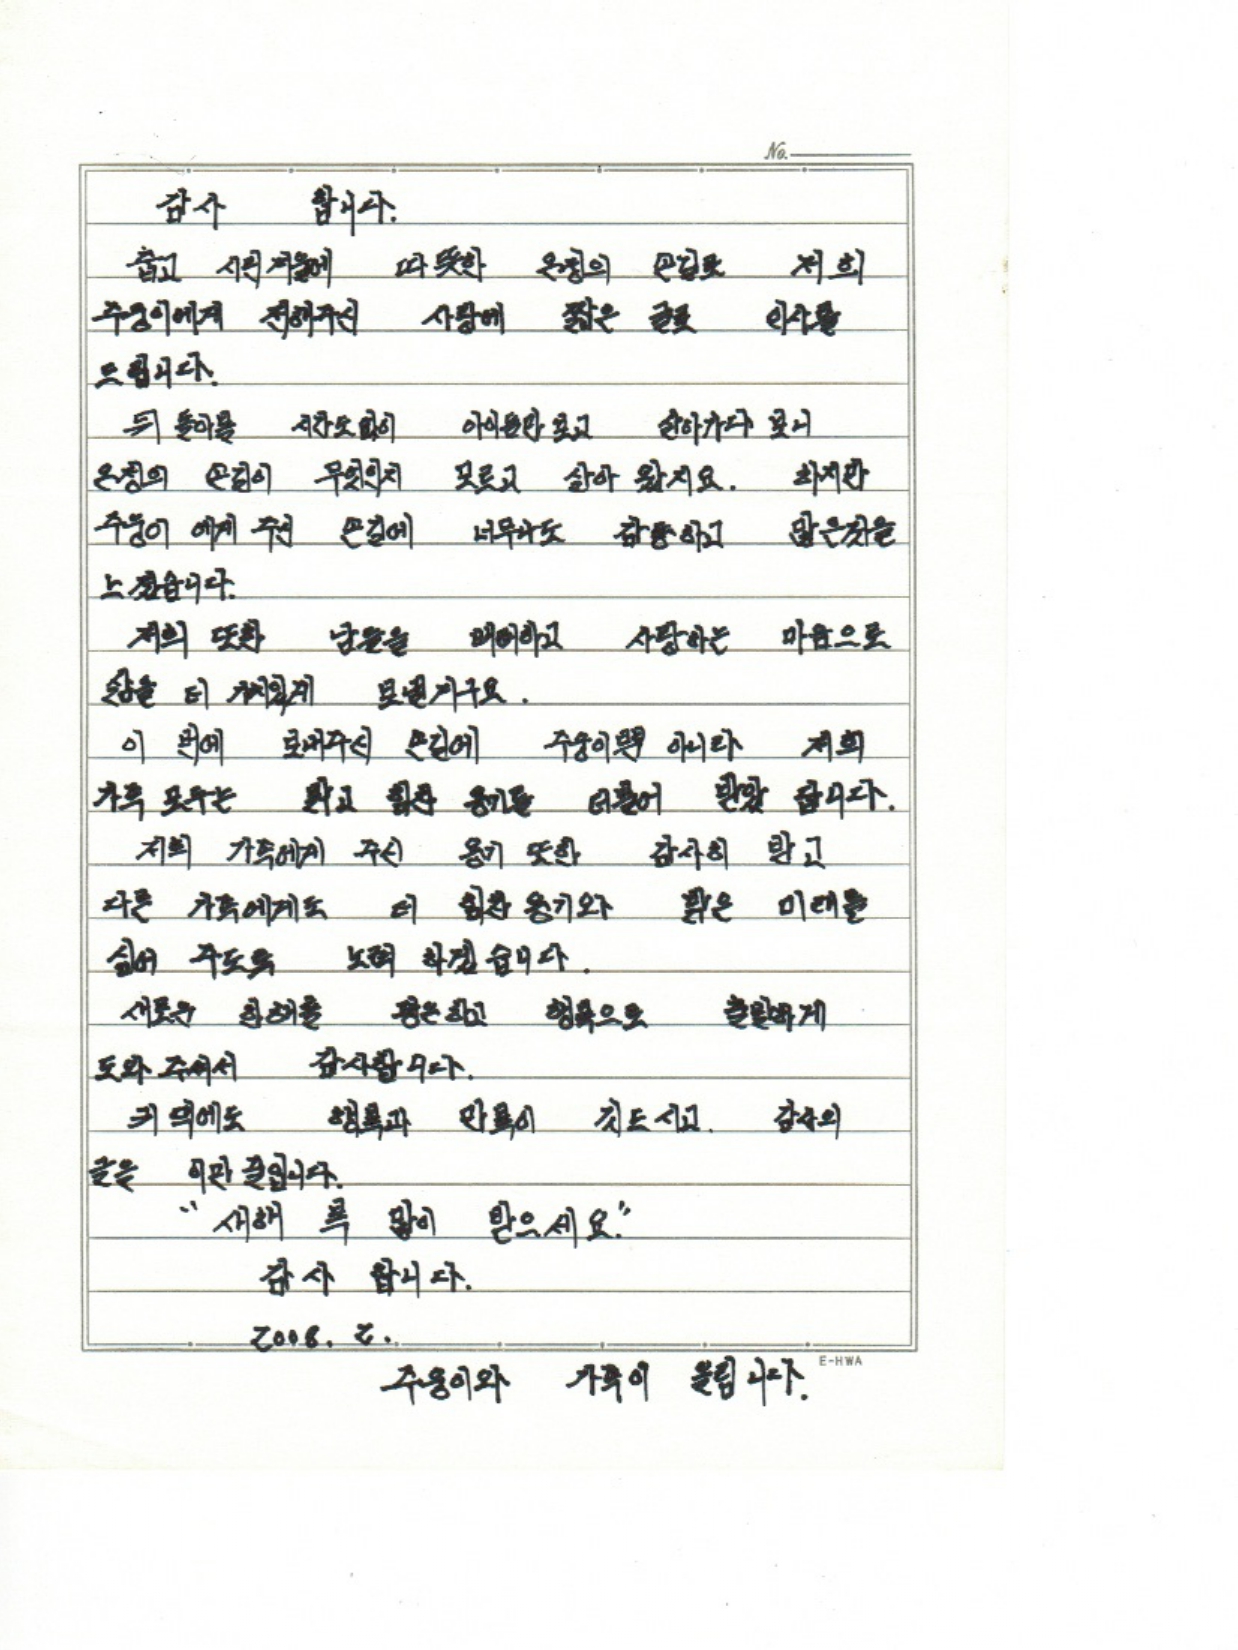 No.
감사 합니다.
춥고 시린 겨울에 따뜻한 온정의 손길로 저희
주웅이에게 전해주신 사랑에 짧은 글로 인사를
드립니다.
뒤 돌아볼 시간도 없이 아이들만 보고 살아가다 보니
온정의 손길이 무엇인지 모르고 살아 왔지요. 하지만
주웅이 에게 주신 손길에 너무나도 감동하고 많은것을
느꼈습니다.
저희 또한 남들을 배려하고 사랑하는 마음으로
삶을 더 가치있게 보낼거구요.
이 번에 보내주신 손길에 주웅이뿐 아니라 저희
가족 모두는 밝고 힘찬 용기를 더불어 받았 답니다.
저희 가족에게 주신 용기 또한 감사히 받고
다른 가족에게도 더 힘찬 용기와 밝은 미래를
심어 주도록 노력 하겠습니다.
새로운 한해를 평온하고 행복으로 출발하게
도와 주셔서 감사합니다.
귀 댁에도 행복과 만복이 깃드시고. 감사의
글을 이만 줄입니다.
"새해 복 많이 받으세요."
감사 합니다.
2008. 2.
E-HWA
주웅이와 가족이 올립니다.